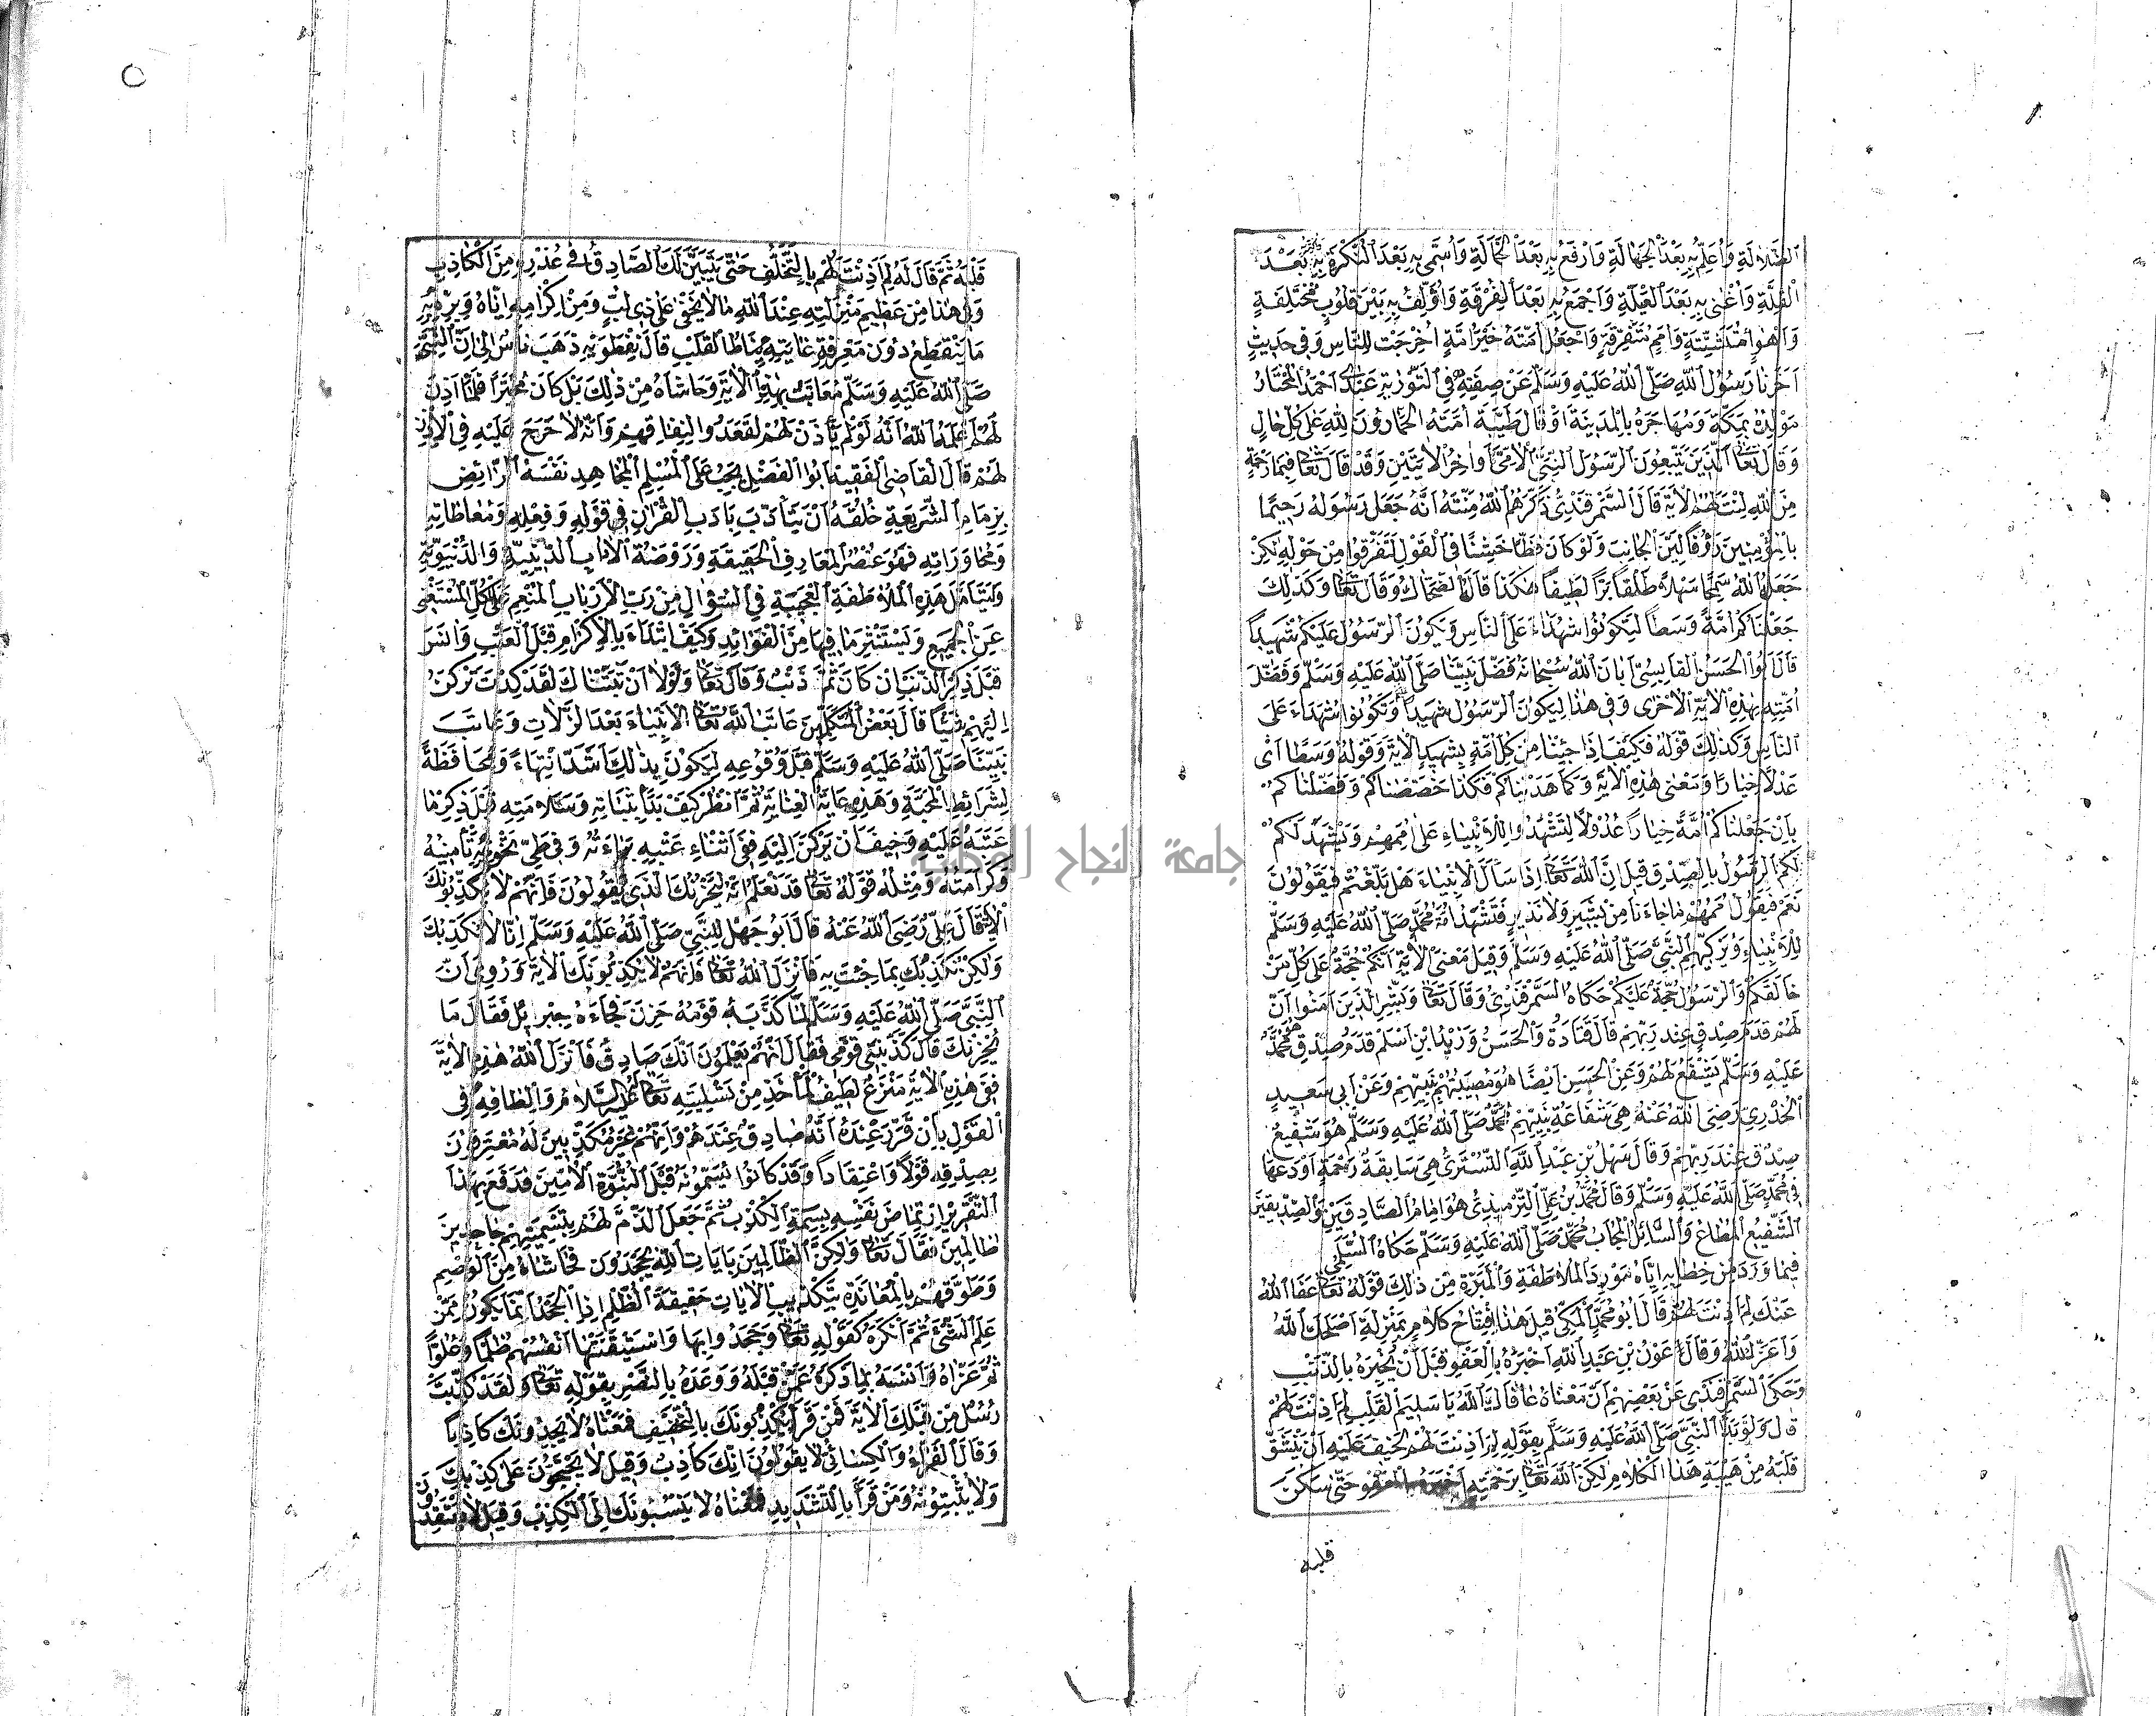 الضَّلَالَةِ وَأُعَلِّمُ بِهِ بَعْدَ الْجَهَالَةِ وَارْفَعُ بِهِ بَعْدَ الْخَمَالَةِ وَأُسَمِّي بِهِ بَعْدَ النَّكْرَةِ بِهِ بَعْدَ
الْقِلَّةِ وَأُغْنِي بِهِ بَعْدَ الْعَيْلَةِ وَأَجْمَعُ بِهِ بَعْدَ الْفِرْقَةِ وَأُؤَلِّفُ بِهِ بَيْنَ قُلُوبٍ مُخْتَلِفَةٍ
وَأَهْوَاءٍ مُتَشَتِّتَةٍ وَأُمَمٍ مُتَفَرِّقَةٍ وَاجْعَلُ أُمَّتَهُ خَيْرَ أُمَّةٍ أُخْرِجَتْ لِلنَّاسِ وَفِي حَدِيثٍ
آخَرَنَا رَسُولُ اللهِ صَلَّى اللهُ عَلَيْهِ وَسَلَّمَ عَنْ صِفَتِهِ فِي التَّوْرَيةِ عَبْدِي أَحْمَدُ الْمُخْتَارُ
مَوْلِدُهُ بِمَكَّةَ وَمُهَاجَرُهُ بِالْمَدِينَةِ أَوْ قَالَ طَيْبَةَ أُمَّتُهُ الْحَمَّادُونَ لِلَّهِ عَلَى كُلِّ حَالٍ
وَقَالَ تَعَالَى الَّذِينَ يَتَّبِعُونَ الرَّسُولَ النَّبِيَّ الْأُمِّيَّ أَوَاخِرُ الْآيَتَيْنِ وَقَدْ قَالَ تَعَالَى فَبِمَا رَحْمَةٍ
مِنَ اللهِ لِنْتَ لَهُمْ الْآيَةَ قَالَ السَّمَرْقَنْدِيُّ ذَكَّرَهُمُ اللهُ مِنَّتَهُ أَنَّهُ جَعَلَ رَسُولَهُ رَحِيمًا
بِالْمُؤْمِنِينَ رَؤُفًا لَيِّنَ الْجَانِبِ وَلَوْ كَانَ فَظًّا خَشِنًا فِي الْقَوْلِ لَتَفَرَّقُوا مِنْ حَوْلِهِ لَكِنْ
جَعَلَهُ اللهُ سَمْحًا سَهْلًا طَلْقًا بَرًّا لَطِيفًا هَكَذَا قَالَهُ الضَّحَّاكُ وَقَالَ تَعَالَى وَكَذَلِكَ
جَعَلْنَاكُمْ أُمَّةً وَسَطًا لِتَكُونُوا شُهَدَاءَ عَلَى النَّاسِ وَيَكُونَ الرَّسُولُ عَلَيْكُمْ شَهِيدًا
قَالَ أَبُوا الْحَسَنِ الْقَابِسِيُّ أَبَانَ اللهُ سُبْحَانَهُ فَضْلَ نَبِيِّنَا صَلَّى اللهُ عَلَيْهِ وَسَلَّمَ وَفَضْلَ
أُمَّتِهِ بِهَذِهِ الْآيَةِ الْأُخْرَى وَفِي هَذَا لِيَكُونَ الرَّسُولُ شَهِيدًا وَتَكُونُوا شُهَدَاءَ عَلَى
النَّاسِ وَكَذَلِكَ قَوْلُهُ فَكَيْفَ إِذَا جِئْنَا مِنْ كُلِّ أُمَّةٍ بِشَهِيدٍ الْآيَةَ وَقَوْلُهُ وَسَطًا أَيْ
عَدْلًا خِيَارًا وَمَعْنَى هَذِهِ الْآيَةِ وَكَمَا هَدَيْنَاكُمْ فَكَذَا خَصَّصْنَاكُمْ وَفَضَّلْنَاكُمْ
بِأَنْ جَعَلْنَاكُمْ أُمَّةً خِيَارًا عُدُولًا لِتَشْهَدُوا لِلْأَنْبِيَاءِ عَلَى أُمَمِهِمْ وَيَشْهَدَ لَكُمْ
لَكُمُ الرَّسُولُ بِالصِّدْقِ قِيلَ إِنَّ اللهَ تَعَالَى إِذَا سَأَلَ الْأَنْبِيَاءَ هَلْ بَلَّغْتُمْ فَيَقُولُونَ
نَعَمْ فَيَقُولُ أُمَمُهُمْ مَا جَاءَنَا مِنْ بَشِيرٍ وَلَا نَذِيرٍ فَتَشْهَدُ أُمَّةُ مُحَمَّدٍ صَلَّى اللهُ عَلَيْهِ وَسَلَّمَ
لِلْأَنْبِيَاءِ وَيُزَكِّيهِمُ النَّبِيُّ صَلَّى اللهُ عَلَيْهِ وَسَلَّمَ وَقِيلَ مَعْنَى الْآيَةِ أَنَّكُمْ حُجَّةٌ عَلَى كُلِّ مَنْ
خَالَفَكُمْ وَالرَّسُولُ حُجَّةٌ عَلَيْكُمْ حَكَاهُ السَّمَرْقَنْدِيُّ وَقَالَ تَعَالَى وَبَشِّرِ الَّذِينَ آمَنُوا أَنَّ
لَهُمْ قَدَمَ صِدْقٍ عِنْدَ رَبِّهِمْ قَالَ قَتَادَةُ وَالْحَسَنُ وَزَيْدُ ابْنِ أَسْلَمَ قَدَمُ صِدْقٍ هُوَ مُحَمَّدٌ
عَلَيْهِ وَسَلَّمَ يَشْفَعُ لَهُمْ وَعَنِ الْحَسَنِ أَيْضًا هُوَ مُصِيبَتُهُمْ بِنَبِيِّهِمْ وَعَنْ أَبِي سَعِيدٍ
الْخُدْرِيِّ رَضِيَ اللهُ عَنْهُ هِيَ شَفَاعَةُ نَبِيِّهِمْ مُحَمَّدٍ صَلَّى اللهُ عَلَيْهِ وَسَلَّمَ هُوَ شَفِيعُ
صِدْقٍ عِنْدَ رَبِّهِمْ وَقَالَ سَهْلُ بْنُ عَبْدِ اللهِ التُّسْتَرِيُّ هِيَ سَابِقَةُ رَحْمَةٍ أَوْدَعَهَا
فِي مُحَمَّدٍ صَلَّى اللهُ عَلَيْهِ وَسَلَّمَ وَقَالَ مُحَمَّدُ بْنُ عَلِيٍّ التِّرْمِذِيُّ هُوَ إِمَامُ الصَّادِقِينَ وَالصِّدِّيقِينَ
الشَّفِيعُ الْمُطَاعُ وَالسَّائِلُ الْمُجَابُ مُحَمَّدٌ صَلَّى اللهُ عَلَيْهِ وَسَلَّمَ حَكَاهُ السُّلَمِيُّ
فِيمَا وَرَدَ مِنْ خِطَابِهِ إِيَّاهُ مَوْرِدَ الْمُلَاطَفَةِ وَالْمَبَرَّةِ مِنْ ذَلِكَ قَوْلُهُ تَعَالَى عَفَا اللهُ
عَنْكَ لِمَ أَذِنْتَ لَهُمْ قَالَ أَبُو مُحَمَّدٍ الْمَكِّيُّ قِيلَ هَذَا افْتِتَاحُ كَلَامٍ بِمَنْزِلَةِ أَصْلَحَكَ اللهُ
وَأَعَزَّكَ اللهُ وَقَالَ عَوْنُ بْنِ عَبْدِ اللهِ أَخْبَرَهُ بِالْعَفْوِ قَبْلَ أَنْ يُخْبِرَهُ بِالذَّنْبِ
وَحَكَى السَّمَرْقَنْدِيُّ عَنْ بَعْضِهِمْ أَنَّ مَعْنَاهُ عَافَاكَ اللهُ يَا سَلِيمَ الْقَلْبِ لِمَ أَذِنْتَ لَهُمْ
قَالَ وَلَوْ بَدَأَ النَّبِيَّ صَلَّى اللهُ عَلَيْهِ وَسَلَّمَ بِقَوْلِهِ لِمَ أَذِنْتَ لَهُمْ لَخِيفَ عَلَيْهِ أَنْ يَنْشَقَّ
قَلْبُهُ مِنْ هَيْبَةِ هَذَا الْكَلَامِ لَكِنَّ اللهَ تَعَالَى بِرَحْمَتِهِ أَخْبَرَهُ بِالْعَفْوِ حَتَّى سَكَنَ
قلبه
قَلْبُهُ ثُمَّ قَالَ لَهُ لِمَ أَذِنْتَ لَهُمْ بِالتَّخَلُّفِ حَتَّى يَتَبَيَّنَ لَكَ الصَّادِقُ فِي عُذْرِهِ مِنَ الْكَاذِبِ
وَفِي هَذَا مِنْ عَظِيمِ مَنْزِلَتِهِ عِنْدَ اللهِ مَا لَا يَخْفَى عَلَى ذِي لُبٍّ وَمِنْ إِكْرَامِهِ إِيَّاهُ وَبِرِّهِ بِهِ
مَا يَنْقَطِعُ دُونَ مَعْرِفَةِ غَايَتِهِ مَنَاطُ الْقَلْبِ قَالَ نِفْطَوَيْهِ ذَهَبَ نَاسٌ إِلَى أَنَّ النَّبِيَّ
صَلَّى اللهُ عَلَيْهِ وَسَلَّمَ مُعَاتَبٌ بِهَذِهِ الْآيَةِ وَحَاشَاهُ مِنْ ذَلِكَ بَلْ كَانَ مُخَيَّرًا فَلَمَّا أَذِنَ
لَهُمْ أَعْلَمَهُ اللهُ أَنَّهُ لَوْ لَمْ يَأْذَنْ لَهُمْ لَقَعَدُوا لِنِفَاقِهِمْ وَأَنَّهُ لَا حَرَجَ عَلَيْهِ فِي الْإِذْنِ
لَهُمْ قَالَ الْقَاضِي الْفَقِيهُ أَبُوا الْفَضْلِ يَجِبُ عَلَى الْمُسْلِمِ الْمُجَاهِدِ نَفْسَهُ الرَّائِضِ
بِزِمَامِ الشَّرِيعَةِ خُلُقَهُ أَنْ يَتَأَدَّبَ بِآدَبِ الْقُرْآنِ فِي قَوْلِهِ وَفِعْلِهِ وَمُعَاطَاتِهِ
وَمُحَاوَرَاتِهِ فَهُوَ عُنْصُرُ الْمَعَارِفِ الْحَقِيقَةِ وَرَوْضَةُ الْآدَابِ الدِّينِيَّةِ وَالدُّنْيَوِيَّةِ
وَلْيَتَأَمَّلْ هَذِهِ الْمُلَاطَفَةَ الْعَجِيبَةَ فِي السُّؤَالِ مِنْ رَبِّ الْأَرْبَابِ الْمُنْعِمِ عَلَى الْكُلِّ الْمُسْتَغْنِي
عَنِ الْجَمِيعِ وَلْيَسْتَثِرْ مَا فِيهَا مِنَ الْفَوَائِدِ وَكَيْفَ ابْتَدَاءَ بِالْإِكْرَامِ قَبْلَ الْعَتْبِ وَآنَسَ
قَبْلَ ذِكْرِ الذَّنْبِ إِنْ كَانَ ثَمَّ ذَنْبٌ وَقَالَ تَعَالَى وَلَوْلَا أَنْ ثَبَّتْنَاكَ لَقَدْ كِدْتَ تَرْكَنُ
إِلَيْهِمْ شَيْئًا قَالَ بَعْضُ الْمُتَكَلِّمِينَ عَاتَبَ اللهُ تَعَالَى الْأَنْبِيَاءَ بَعْدَ الزَّلَّاتِ وَعَاتَبَ
نَبِيَّنَا صَلَّى اللهُ عَلَيْهِ وَسَلَّمَ قَبْلَ وُقُوعِهِ لِيَكُونَ بِذَلِكَ أَشَدَّ انْتِهَاءً وَمُحَافَظَةً
لِشَرَائِطِ الْمَحَبَّةِ وَهَذِهِ غَايَةُ الْعِنَايَةِ ثُمَّ انْظُرْ كَيْفَ بَدَأَ بِثَبَاتِهِ وَسَلَامَتِهِ قَبْلَ ذِكْرِ مَا
عَتَبَهُ عَلَيْهِ وَخِيفَ أَنْ يَرْكَنَ إِلَيْهِ فَفِي أَثْنَاءِ عَتْبِهِ بَرَاءَتُهُ وَفِي طَيِّ تَخْوِيفِهِ تَأْمِينُهُ
وَكَرَامَتُهُ وَمِثْلُهُ قَوْلُهُ تَعَالَى قَدْ نَعْلَمُ إِنَّهُ لَيَحْزُنُكَ الَّذِي يَقُولُونَ فَإِنَّهُمْ لَا يُكَذِّبُونَكَ
الْآيَةَ قَالَ عَلِيٌّ رَضِيَ اللهُ عَنْهُ قَالَ أَبُو جَهْلٍ لِلنَّبِيِّ صَلَّى اللهُ عَلَيْهِ وَسَلَّمَ إِنَّا لَا نُكَذِّبُكَ
وَلَكِنْ نُكَذِّبُكَ بِمَا جِئْتَ بِهِ فَأَنْزَلَ اللهُ تَعَالَى فَإِنَّهُمْ لَا يُكَذِّبُونَكَ الْآيَةَ وَرُوِيَ أَنَّ
النَّبِيَّ صَلَّى اللهُ عَلَيْهِ وَسَلَّمَ لَمَّا كَذَّبَهُ قَوْمُهُ حَزِنَ فَجَاءَهُ جِبْرَائِلُ فَقَالَ مَا
يُحْزِنُكَ قَالَ كَذَّبَنِي قَوْمِي فَقَالَ إِنَّهُمْ يَعْلَمُونَ أَنَّكَ صَادِقٌ فَأَنْزَلَ اللهُ هَذِهِ الْآيَةَ
فَفِي هَذِهِ الْآيَةِ مَنْزَعٌ لَطِيفُ الْمَأْخَذِ مِنْ تَسْلِيَتِهِ تَعَالَى عَلَيْهِ السَّلَامُ وَإِلْطَافِهِ فِي
الْقَوْلِ بِأَنْ قَرَّرَ عِنْدَهُ أَنَّهُ صَادِقٌ عِنْدَهُمْ وَأَنَّهُمْ غَيْرُ مُكَذِّبِينَ لَهُ مُعْتَرِفُونَ
بِصِدْقِهِ قَوْلًا وَاعْتِقَادًا وَقَدْ كَانُوا يُسَمُّونَهُ قَبْلَ النُّبُوَّةِ الْأَمِينَ فَدَفَعَ بِهَذَا
التَّقْرِيرِ ارْتِمَاضَ نَفْسِهِ بِسِمَةِ الْكَذِبِ ثُمَّ جَعَلَ الذَّمَّ لَهُمْ بِتَسْمِيَتِهِمْ جَاحِدِينَ
ظَالِمِينَ فَقَالَ تَعَالَى وَلَكِنَّ الظَّالِمِينَ بِآيَاتِ اللهِ يَجْحَدُونَ فَحَاشَاهُ مِنَ الْوَصْمِ
وَطَوَّقَهُمْ بِالْمُعَانَدَةِ بِتَكْذِيبِ الْآيَاتِ حَقِيقَةَ الظُّلْمِ إِذِ الْجَحْدُ إِنَّمَا يَكُونُ مِمَّنْ
عَلِمَ الشَّيْءَ ثُمَّ أَنْكَرَهُ كَقَوْلِهِ تَعَالَى وَجَحَدُوا بِهَا وَاسْتَيْقَنَتْهَا أَنْفُسُهُمْ ظُلْمًا وَعُلُوًّا
ثُمَّ عَزَّاهُ وَآنَسَهُ بِمَا ذَكَرَهُ عَمَّنْ قَبْلَهُ وَوَعَدَهُ بِالنَّصْرِ بِقَوْلِهِ تَعَالَى وَلَقَدْ كُذِّبَتْ
رُسُلٌ مِنْ قَبْلِكَ الْآيَةَ فَمَنْ قَرَأَ يُكْذِبُونَكَ بِالتَّخْفِيفِ فَمَعْنَاهُ لَا يَجِدُونَكَ كَاذِبًا
وَقَالَ الْفَرَّاءُ وَالْكِسَائِيُّ لَا يَقُولُونَ إِنَّكَ كَاذِبٌ وَقِيلَ لَا يَحْتَجُّونَ عَلَى كَذِبِكَ
وَلَا يُثْبِتُونَهُ وَمَنْ قَرَأَ بِالتَّشْدِيدِ فَمَعْنَاهُ لَا يَنْسُبُونَكَ إِلَى الْكَذِبِ وَقِيلَ لَا يَعْتَقِدُونَ
جامعة النجاح الوطنية